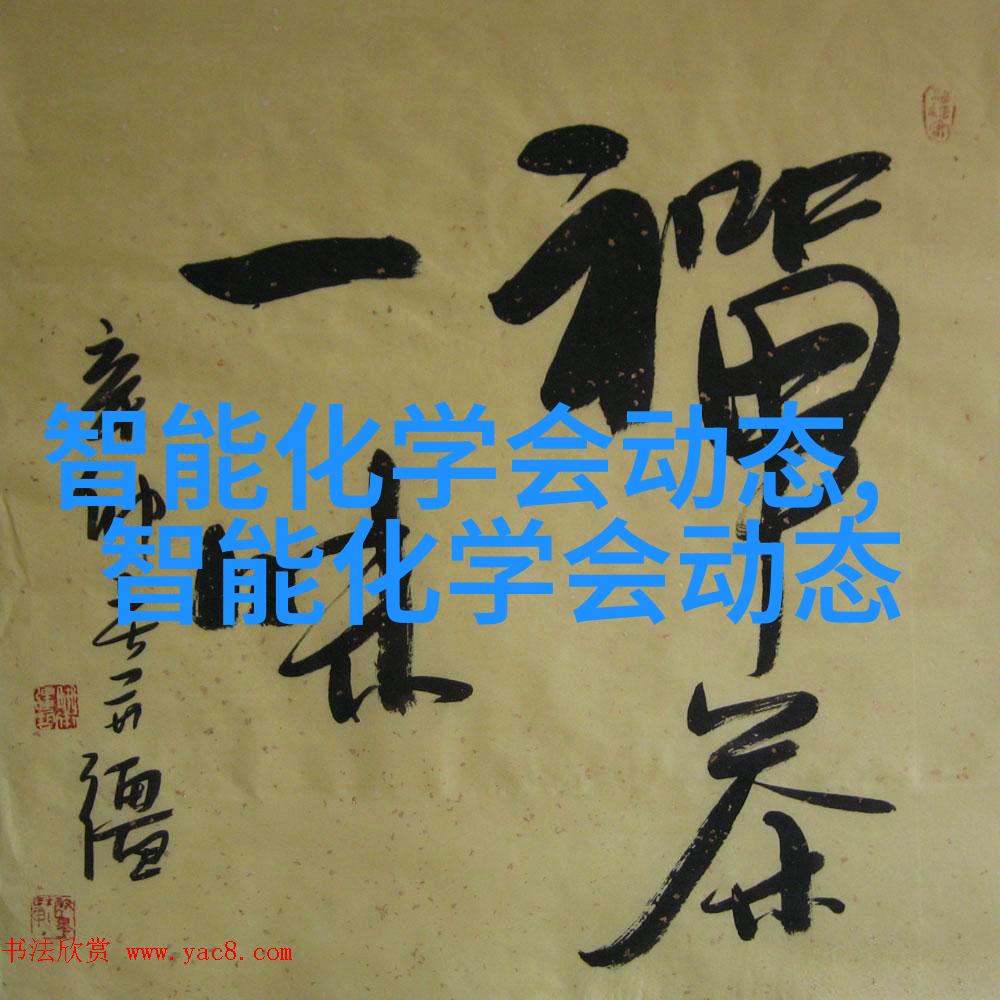 禅茶
一味
智能化学会动态,
智能化学会动态
书法欣赏 www.yac8.com